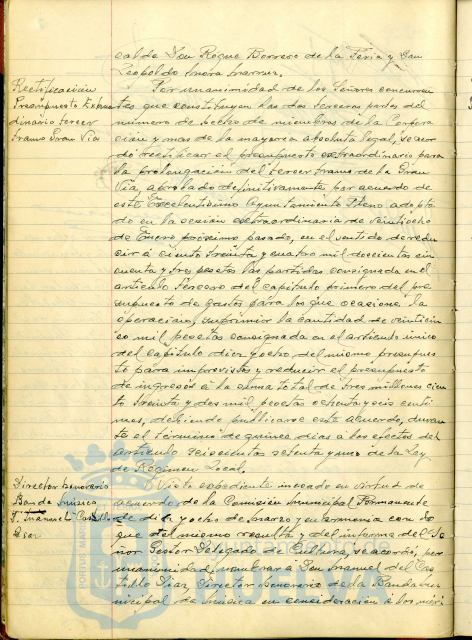 calde Don Roque Borrero de la Feria y Don
Leopoldo Mora
Rectificación
Presupuesto Extraor
dinario tercer
tramo Gran Vía
Por unanimidad de los Señores concurren
tes que constituyen las dos terceras partes del
número de hecho de miembros de la Corpora
ción y mas de la mayoría absoluta legal, se acor
dó rectificar el presupuesto extraordinario para
la prolongación del tercer tramo de la Gran
Vía, aprobado definitivamente por acuerdo de
este Excelentísimo Ayuntamiento Pleno adopta
do en la sesión extraordinaria de veintiocho
de Enero próximo pasado, en el sentido de redu
cir a ciento treinta y cuatro mil doscientas cin
cuenta y tres pesetas las partidas consignada en el
artículo tercero del capítulo primero del pre
supuesto de gastos para los que ocasione la
operación, suprimir la cantidad de veinticin
co mil pesetas consignada en el artículo único
del capítulo diez y ocho del mismo presupues
to para imprevistos y reducir el presupuesto
de ingresos a la suma total de tres millones cien
to treinta y dos mil pesetas ochenta y seis cénti
mos, debiendo publicarse este acuerdo, duran
te el término de quince días a los efectos del
artículo seiscientos setenta y uno de la Ley
de Régimen Local.
Director Honorario
Banda música
D. Manuel Castillo
Díaz
Visto expediente incoado en virtud de
acuerdo de la Comisión Municipal Permanente
de diez y ocho de Marzo y en armonía con lo
que del mismo resulta y del informe del Se
ñor Gestor Delegado de Cultura, se acordó, por
unanimidad, nombrar a Don Manuel del Cas
tillo Díaz Director Honorario de la Banda Mu
nicipal de Música en consideración a los méri
HUELVA